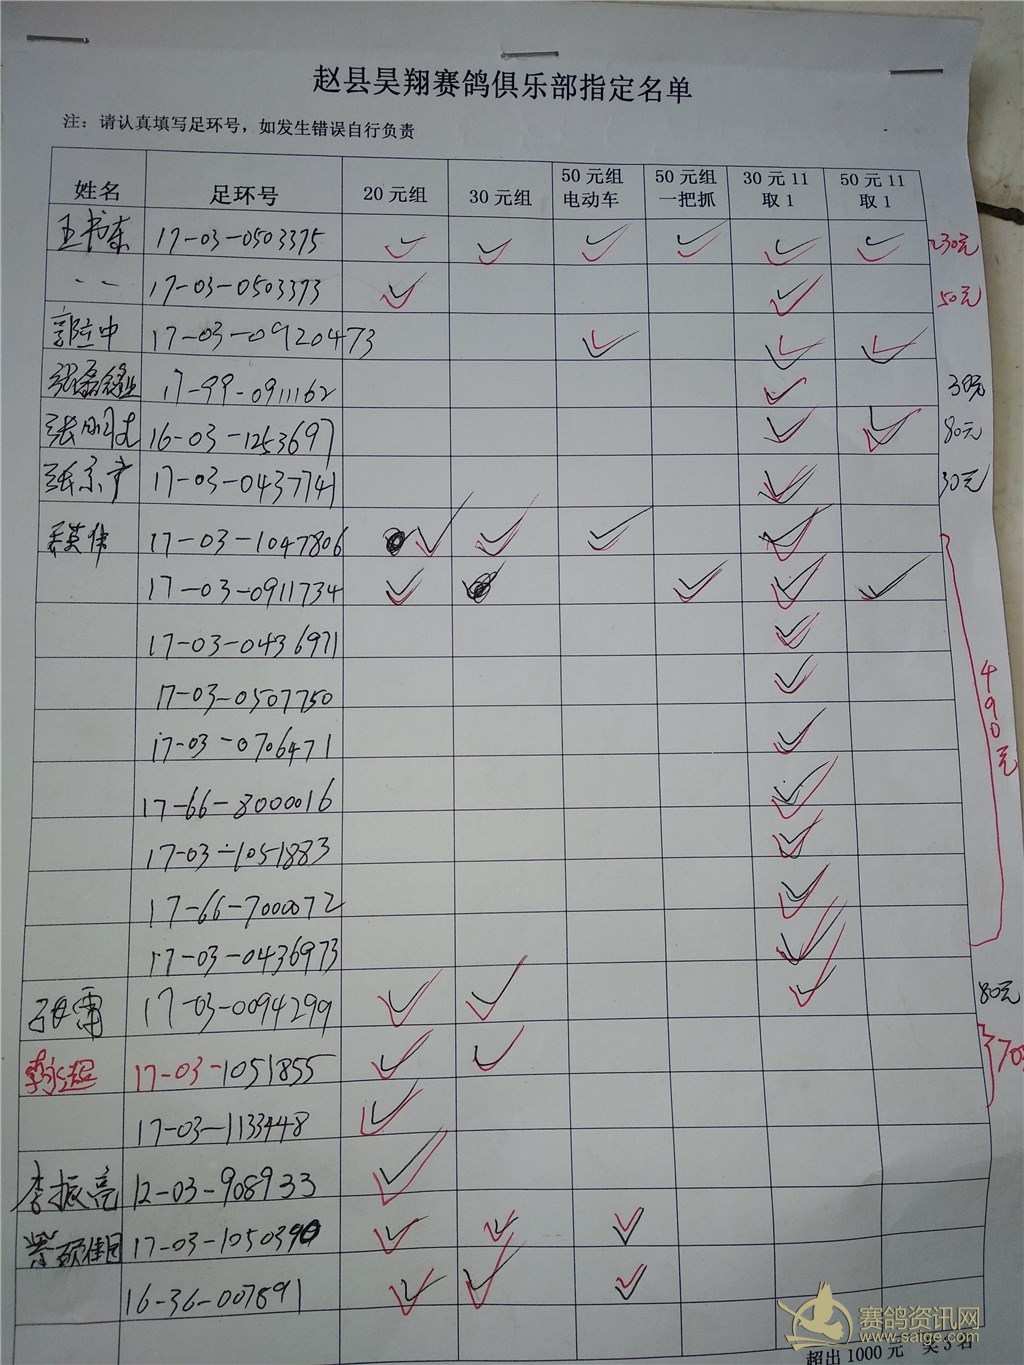 赵县昊翔赛鸽俱乐部指定名单
注：请认真填写足环号，如发生错误自行负责
姓名 足环号 20元组 30元组 50元组电动车 50元组一把抓 30元11取1 50元11取1
王书东 17-03-0503375 ✓ ✓ ✓ ✓ ✓ ✓ 230元
17-03-0503373 ✓ ✓ 50元
郭立中 17-03-0920473 ✓ ✓ ✓
17-99-0911162 ✓ 30元
16-03-1253697 ✓ ✓ 80元
17-03-0437741 ✓ 30元
17-03-1047806 ✓ ✓ ✓ ✓
17-03-0911734 ✓ ✓ ✓ ✓
17-03-0436971 ✓
17-03-0507750 ✓ 490元
17-03-0706471 ✓
17-66-8000016 ✓
17-03-1051883 ✓
17-66-7000072 ✓
17-03-0436973 ✓
17-03-0094299 ✓ ✓ ✓ 80元
李永超 17-03-1051855 ✓ ✓
17-03-1133448 ✓
李振亮 12-03-908933 ✓
17-03-1050390 ✓ ✓ ✓
16-36-007891 ✓ ✓ ✓
赛鸽资讯网
www.saige.com
超出1000元 奖3名